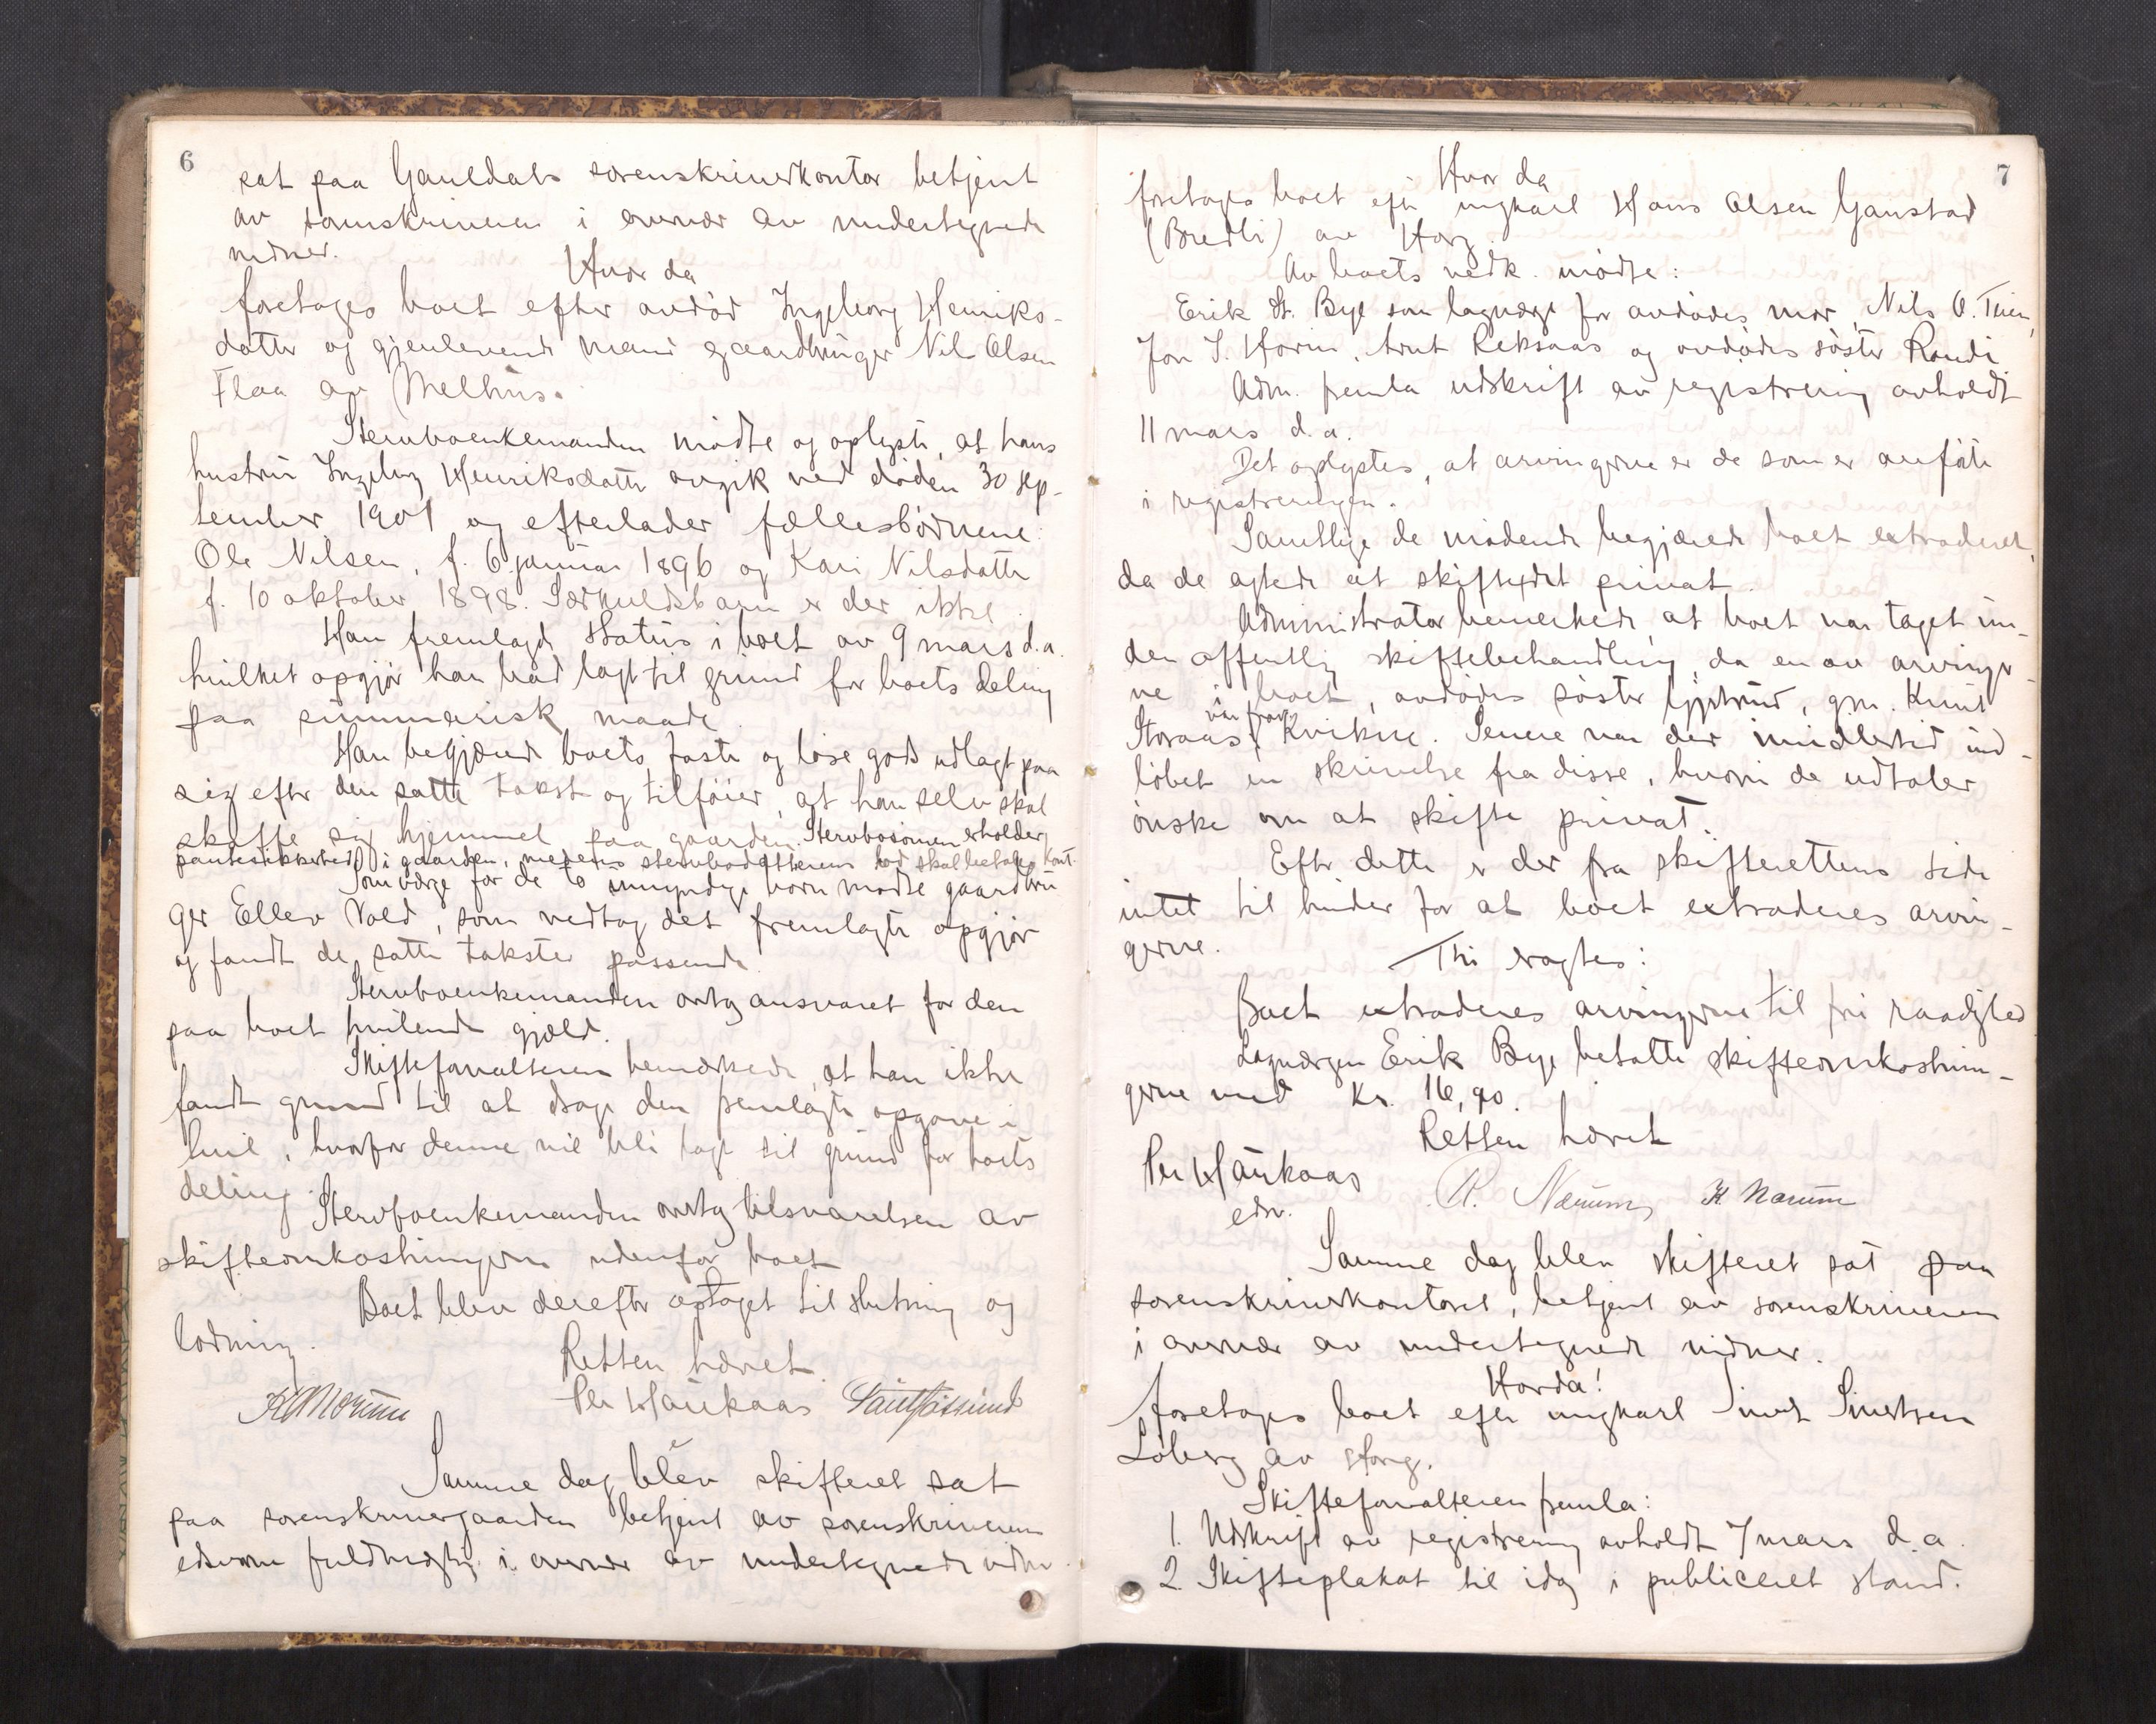 6
sat paa Gauldals sorenskriverkontor betjent
av sorenskriveren i overvær av undertegnede
vidner.
Hvor da
foretoges boet efter avdød Ingeborg Henriks-
datter og gjenlevende mand gaardbruger Nils Olsen
Flaa av Melhus.
Stervboenkemanden mødte og oplyste, at hans
hustru Ingeborg Henriksdatter avgik ved døden 30 sep-
tember 1901 og efterlader fællesbørnene:
Ole Nilsen, f. 6 januar 1896 og Kari Nilsdatter
f. 10 oktober 1898. Særkuldsbarn er der ikke.
Han fremlagde Status i boet av 9 mars d.a.
hvilket opgjør han bad lagt til grund for boets deling
paa summarisk maade.
Han begjærede boets faste og løse gods udlagt paa
sig efter den satte takst og tilføier, at han selv skal
skaffe sig hjemmel paa gaarden. Stervbosønnen erholder
pantesikkerhed i gaarden, medens stervbodatterens lod skal betales kont.
Som værge for de to umyndige børn mødte gaardbru-
ger Ellev Vold, som vedtog det fremlagte opgjør
og fandt de satte takster passende.
Stervboenkemanden overtog ansvaret for den
paa boet hvilende gjæld.
Skifteforvalteren bemærkede, at han ikke
fandt grund til at drage den fremlagte opgave i
tvil, hvorfor denne vil bli lagt til grund for boets
deling.
Stervboenkemanden overtog tilsvarelsen av
skifteomkostningerne udenfor boet.
Boet blev derefter optaget til slutning og
lodning.
Retten hævet.
K Nærum Per Haukaas
Samme dag blev skifteret sat
paa sorenskrivergaarden betjent av sorenskriverens
edsvorne fuldmægtig i overvær av undertegnede vidner.
7
Hvor da
foretoges boet efter ungkarl Hans Olsen Gaustad
(Bredli) av Horg.
Av boets vedk. mødte:
Erik St. Bye som lagværge for avdødes mor, Nils O. Teien,
Jon J. Horin, Arnt Reksaas og avdødes søster Randi.
Adm. fremla udskrift av registrering avholdt
11 mars d.a.
Det oplystes, at arvingerne er de som er anførte
i registreringen.
Samtlige de mødende begjærede boet extraderet,
da de agtede at skifte det privat.
Administrator bemerkede, at boet var taget un-
der offentlig skiftebehandling, da en av arvinger-
ne i boet, avdødes søster Gjertrud, gm. Knut
Storaas var fra Kvikne. Senere var der imidlertid ind-
løbet en skrivelse fra disse, hvori de udtaler
ønske om at skifte privat.
Efter dette er der fra skifterettens side
intet til hinder for at boet extraderes arvin-
gerne.
Thi eragtes:
Boet extraderes arvingerne til fri raadighed
Lagværgen Erik Bye betalte skifteomkostnin-
gerne med Kr. 16,90.
Retten hævet
Per Haukaas R. Nærum K Nærum
edsv.
Samme dag blev skifteret sat paa
sorenskriverkontoret, betjent av sorenskriveren
i overvær av undertegnede vidner.
Hvorda!
foretoges boet efter ungkarl Sivert Sivertsen
Løberg av Horg.
Skifteforvalteren fremla:
1. Udskrift av registrering avholdt 7 mars d.a.
2. Skifteplakat til idag i publiceret stand.